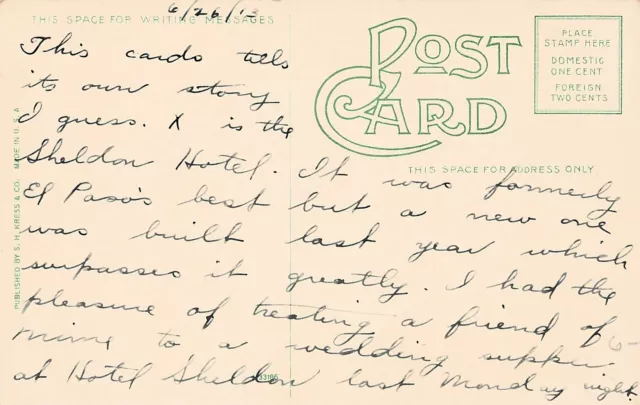 6/26/13
THIS SPACE FOR WRITING MESSAGES
POST
CARD
PLACE
STAMP HERE
DOMESTIC
ONE CENT
FOREIGN
TWO CENTS
THIS SPACE FOR ADDRESS ONLY
PUBLISHED BY S. H. KRESS & CO. MADE IN U. S. A.
This cards tells
its own story
I guess. X is the
Sheldon Hotel. It was formerly
El Paso's best but a new one
was built last year which
surpasses it greatly. I had the
pleasure of treating a friend of
mine to a wedding supper
at Hotel Sheldon last Monday night.